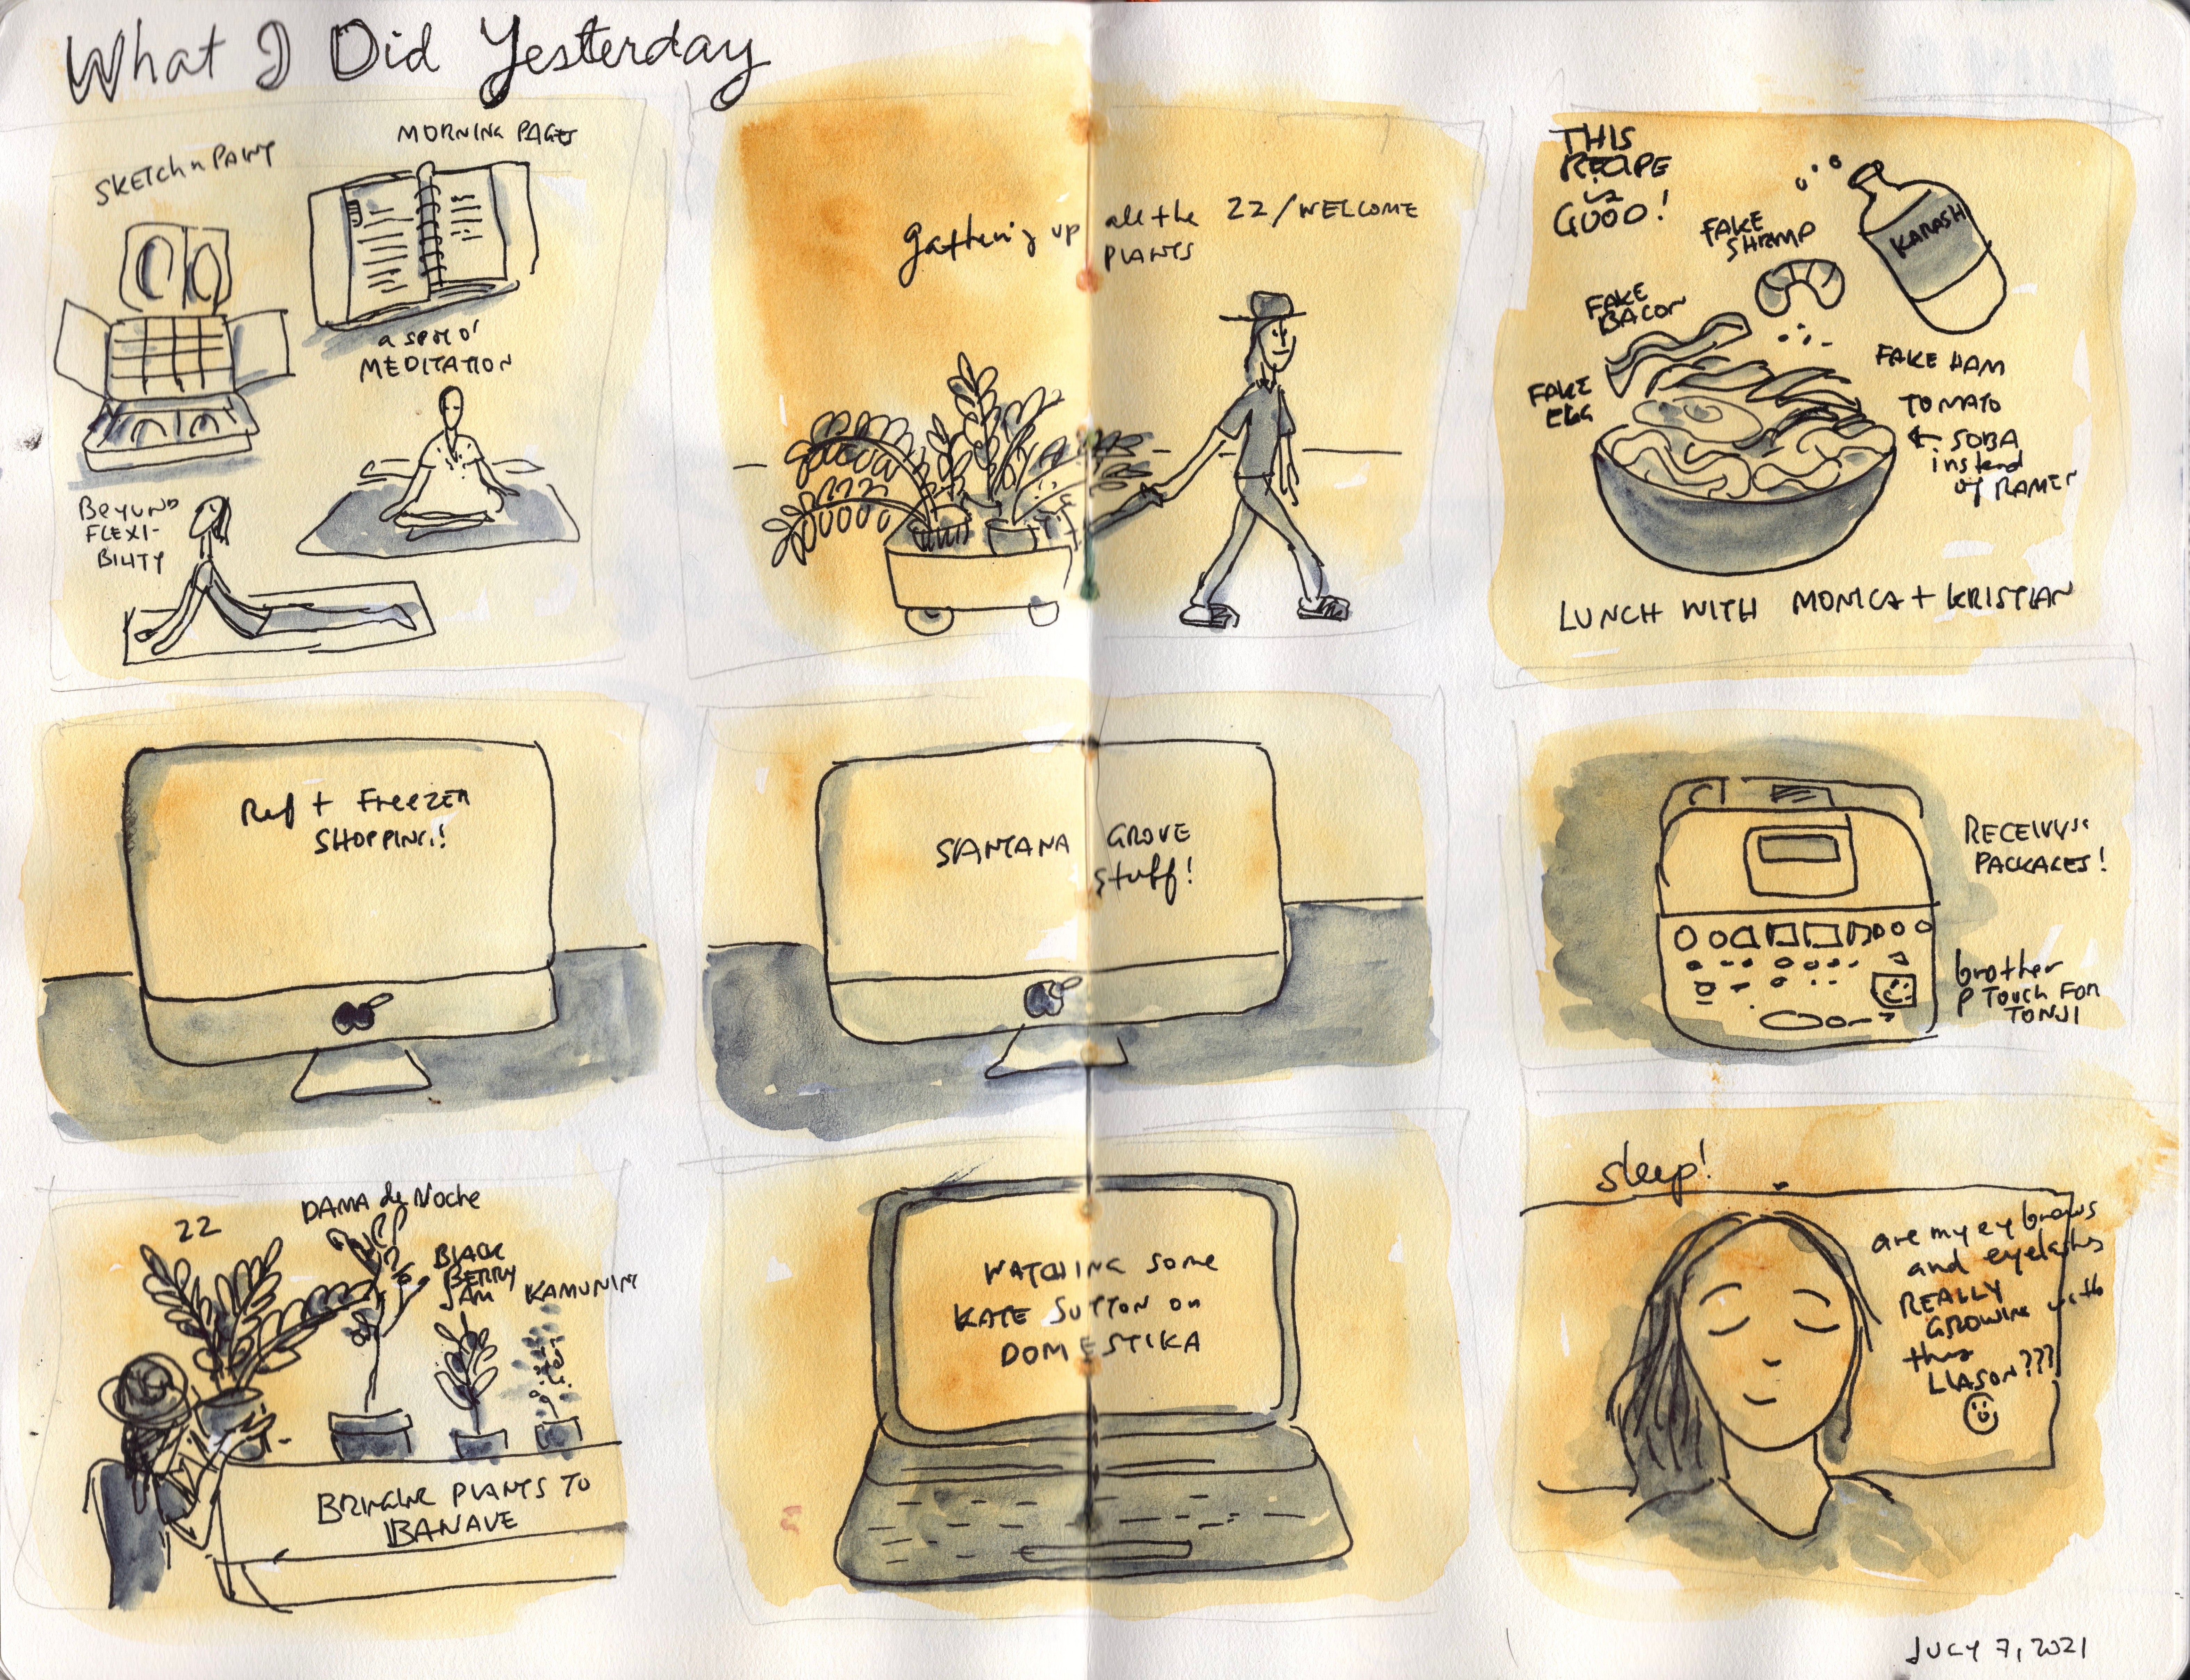 What I Did Yesterday
SKETCH n PAINT
MORNING PAGES
a spot o'
MEDITATION
BEYOND
FLEXI-
BILITY
gathering up all the ZZ/WELCOME
PLANTS
THIS
RECIPE
is
GOOD!
FAKE
SHRIMP
KANASH
FAKE
BACON
FAKE
EGG
FAKE HAM
TOMATO
← SOBA
instead
of RAMEN
LUNCH WITH MONICA + KRISTIAN
Ref + FREEZER
SHOPPING!
SANTANA GROVE
stuff!
RECEIVING
PACKAGES!
brother
P TOUCH FOR
TONJI
ZZ
DAMA de Noche
BLACK
BERRY
JAM
KAMUNING
BRINGING PLANTS TO
BANAVE
WATCHING some
KATE SUTTON on
DOMESTIKA
sleep!
are my eyebrows
and eyelashes
REALLY
GROWING with
this
LIASON???
JULY 7, 2021